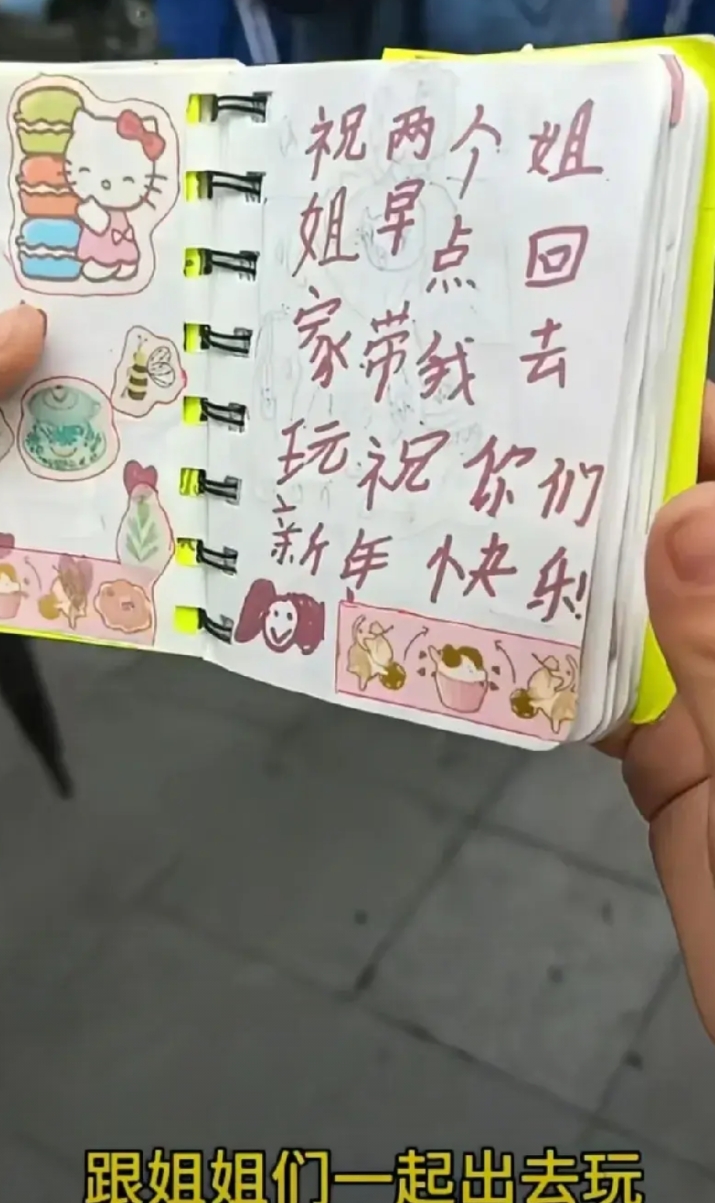 祝两个姐
姐早点回
家带我去
玩祝你们
新年快乐!
跟姐姐们一起出去玩